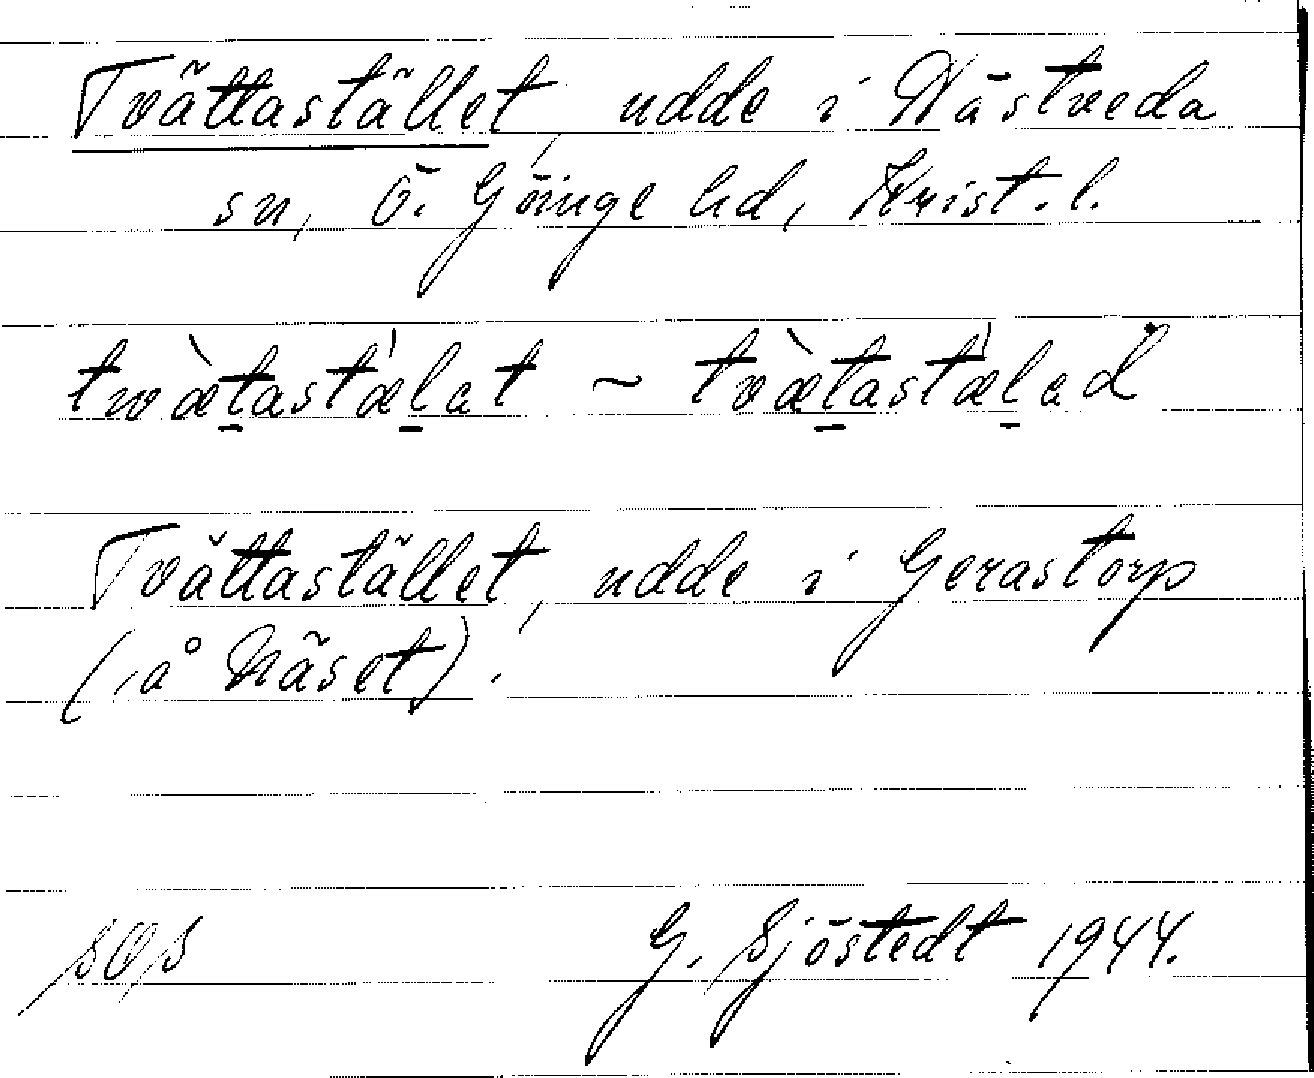 Tvättastället, udde i Nästveda
sn, Ö. Göinge hd, Krist. l.
twæ̀tastæ̍lat ~ tvæ̀tastæ̍lad
Tvättastället, udde i Gerastorp
(på Näset).
G. Sjöstedt 1944.